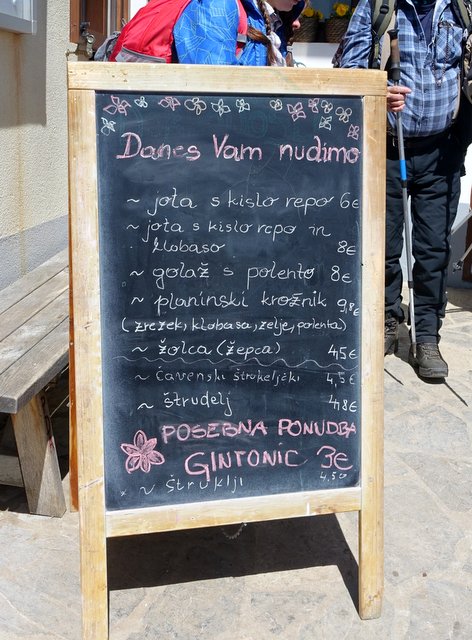 Danes Vam nudimo
~ jota s kislo repo 6€
~ jota s kislo repo in
klobaso 8€
~ golaž s polento 8€
~ planinski krožnik 9,8€
(zrezek, klobasa, zelje, polenta)
~ žolca (žepca) 4,5€
~ čavenski štrukeljčki 4,5€
~ štrudelj 4,8€
POSEBNA PONUDBA
GINTONIC 3€
~ štruklji 4,50€